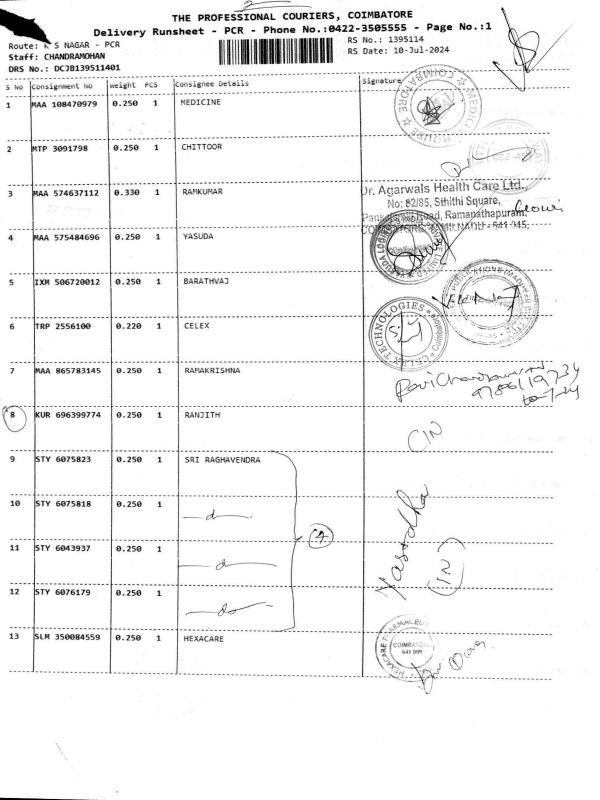 THE PROFESSIONAL COURIERS, COIMBATORE
Delivery Runsheet - PCR - Phone No.:0422-3505555 - Page No.:1
Route: K S NAGAR - PCR
RS No.: 1395114
Staff: CHANDRAMOHAN
RS Date: 10-Jul-2024
DRS No.: DCJB139511401
S No Consignment No weight PCS Consignee Details Signature
1 MAA 108470979 0.250 1 MEDICINE
COIMBATORE
2 MTP 3091798 0.250 1 CHITTOOR
3 MAA 574637112 0.330 1 RAMKUMAR
Dr. Agarwals Health Care Ltd.,
No: 82/85, Sthithi Square,
Road, Ramanathapuram,
TAMILNADU - 641 045,
4 MAA 575484696 0.250 1 YASUDA
5 IXM 506720012 0.250 1 BARATHVAJ
6 TRP 2556100 0.220 1 CELEX
CELEX TECHNOLOGIES
7 MAA 865783145 0.250 1 RAMAKRISHNA
8 KUR 696399774 0.250 1 RANJITH
9 STY 6075823 0.250 1 SRI RAGHAVENDRA
10 STY 6075818 0.250 1 do
11 STY 6043937 0.250 1 do
12 STY 6076179 0.250 1 do
Yasodha
(IN)
13 SLM 350084559 0.250 1 HEXACARE
HEXACARE
COIMBATORE
641 009